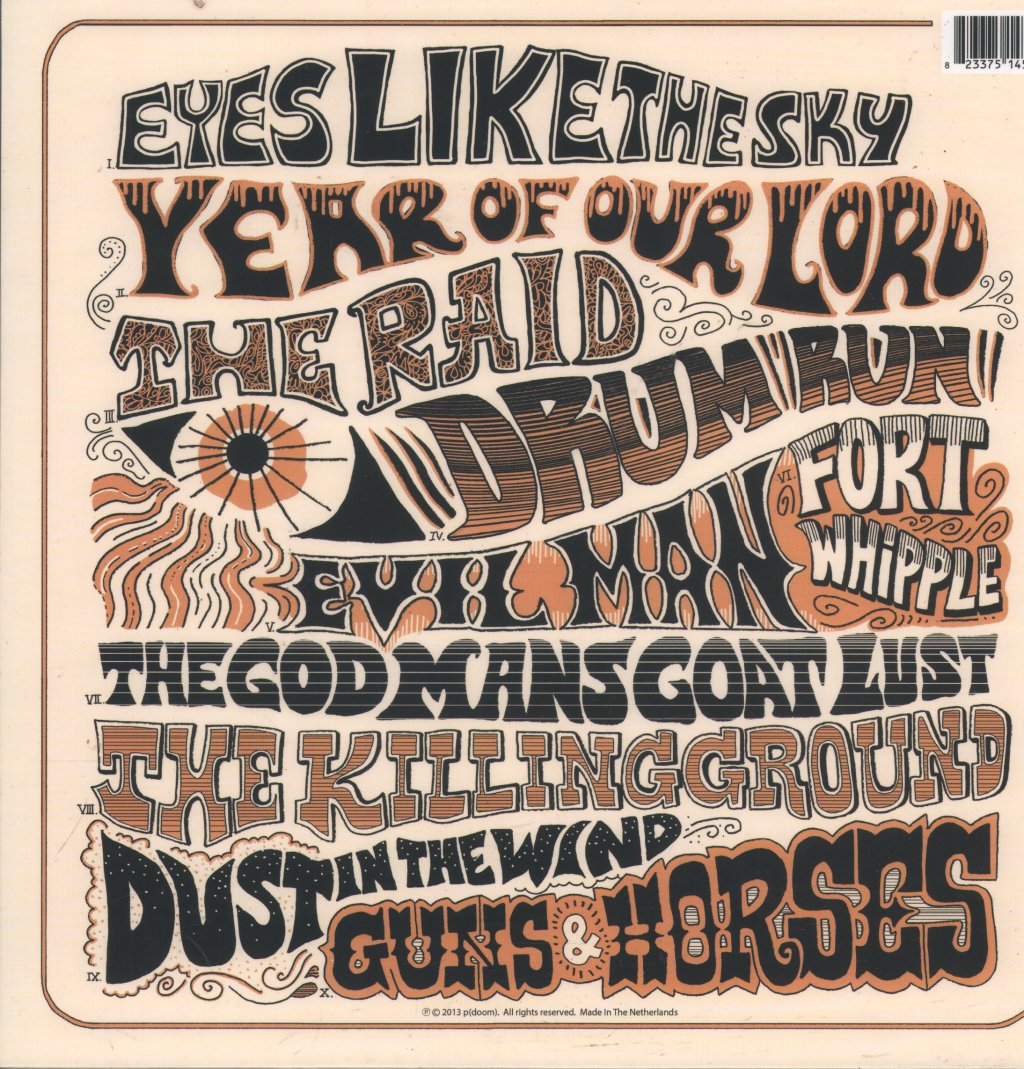 8 23375 145
I. EYES LIKE THE SKY
II. YEAR OF OUR LORD
III. THE RAID
IV. DRUM RUN
V. EVIL MAN
VI. FORT
WHiPPLE
VII. THE GOD MANS GOAT LUST
VIII. THE KILLING GROUND
IX. DUST IN THE WIND
X. GUNS & HORSES
℗ © 2013 p(doom). All rights reserved. Made In The Netherlands